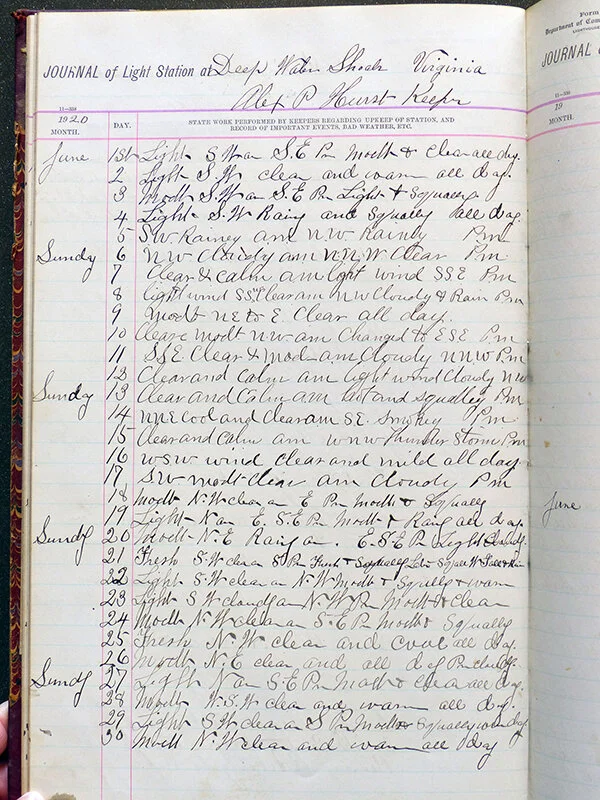 JOURNAL of Light Station at Deep Water Shoals Virginia
Alex P Hurst Keeper
11—359
1920
MONTH.
DAY.
STATE WORK PERFORMED BY KEEPERS REGARDING UPKEEP OF STATION, AND
RECORD OF IMPORTANT EVENTS, BAD WEATHER, ETC.
June 1st Light S.W am S.E Pm Modt & Clear all day.
2 Light S.W clear and warm all day.
3 Modt S.W am S.E Pm Light & Squally
4 Light S.W Rainy and Squally all day.
5 S.W. Rainey am N.W Rainey Pm
Sunday 6 N.W Cloudy am N.N.W Clear Pm
7 Clear & Calm am light wind SSE Pm
8 light wind SSE Clear am NW Cloudy & Rain Pm
9 Modt NE to E. Clear all day.
10 Clear & Modt N.W. am Changed to ESE Pm
11 SSE Clear & Mod am Cloudy NNW Pm
12 Clear and Calm am light wind Cloudy NW
Sunday 13 Clear and Calm am and Squalley Pm
14 NNE Cool and Clear am S.E. Smokey Pm
15 Clear and Calm am WNW Thunder Storm Pm
16 WSW wind Clear and mild all day
17 SW modt Clear am Cloudy Pm
18 Modt N.W clear am E Pm Modt & Squally
19 Light N am E.S.E Pm Modt & Rain all day.
Sundy 20 Modt N.E Rain am. E.S.E Pm Light Cloudy
21 Fresh S.W clear am S Pm Fresh & Squally
22 Light S.W clear am N.W Modt & Squally & warm
23 Light S W cloudy am N.W Pm Modt & Clear
24 Modt N.W clear am S.E Pm Modt & Squally
25 Fresh N.W clear and Cool all day.
26 Modt N.E clear and all day Pm cloudy.
Sundy 27 Light N am S.E Pm Modt & clear all day.
28 Modt W.S.W clear and warm all day
29 Light S.W clear am S Pm Modt & Squally warm day
30 Modt N.W clear and warm all day
Form
Department of Com
LIGHTHOUSE
JOURNAL
11—359
19
MONTH.
June